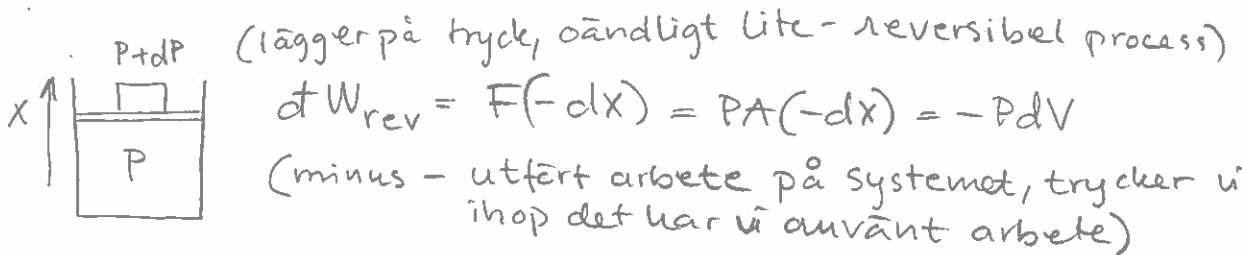 (lägger på tryck, oändligt lite - reversibel process)
P+dP
đW_rev = F(-dx) = PA(-dx) = -PdV
x
P
(minus - utfört arbete på systemet, trycker vi
ihop det har vi använt arbete)